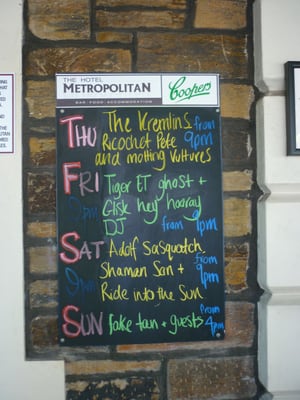 THE HOTEL
METROPOLITAN
BAR FOOD ACCOMMODATION
Coopers
THU The Kremlins from
Ricochet Pete 9pm
and molting Vultures
FRI Tiger ET ghost +
9pm Glisk hey hooray
DJ from 9pm
SAT Adolf Sasquatch,
9pm Shaman Son + from
Ride into the Sun 9pm
SUN fake tan + guests from
4pm